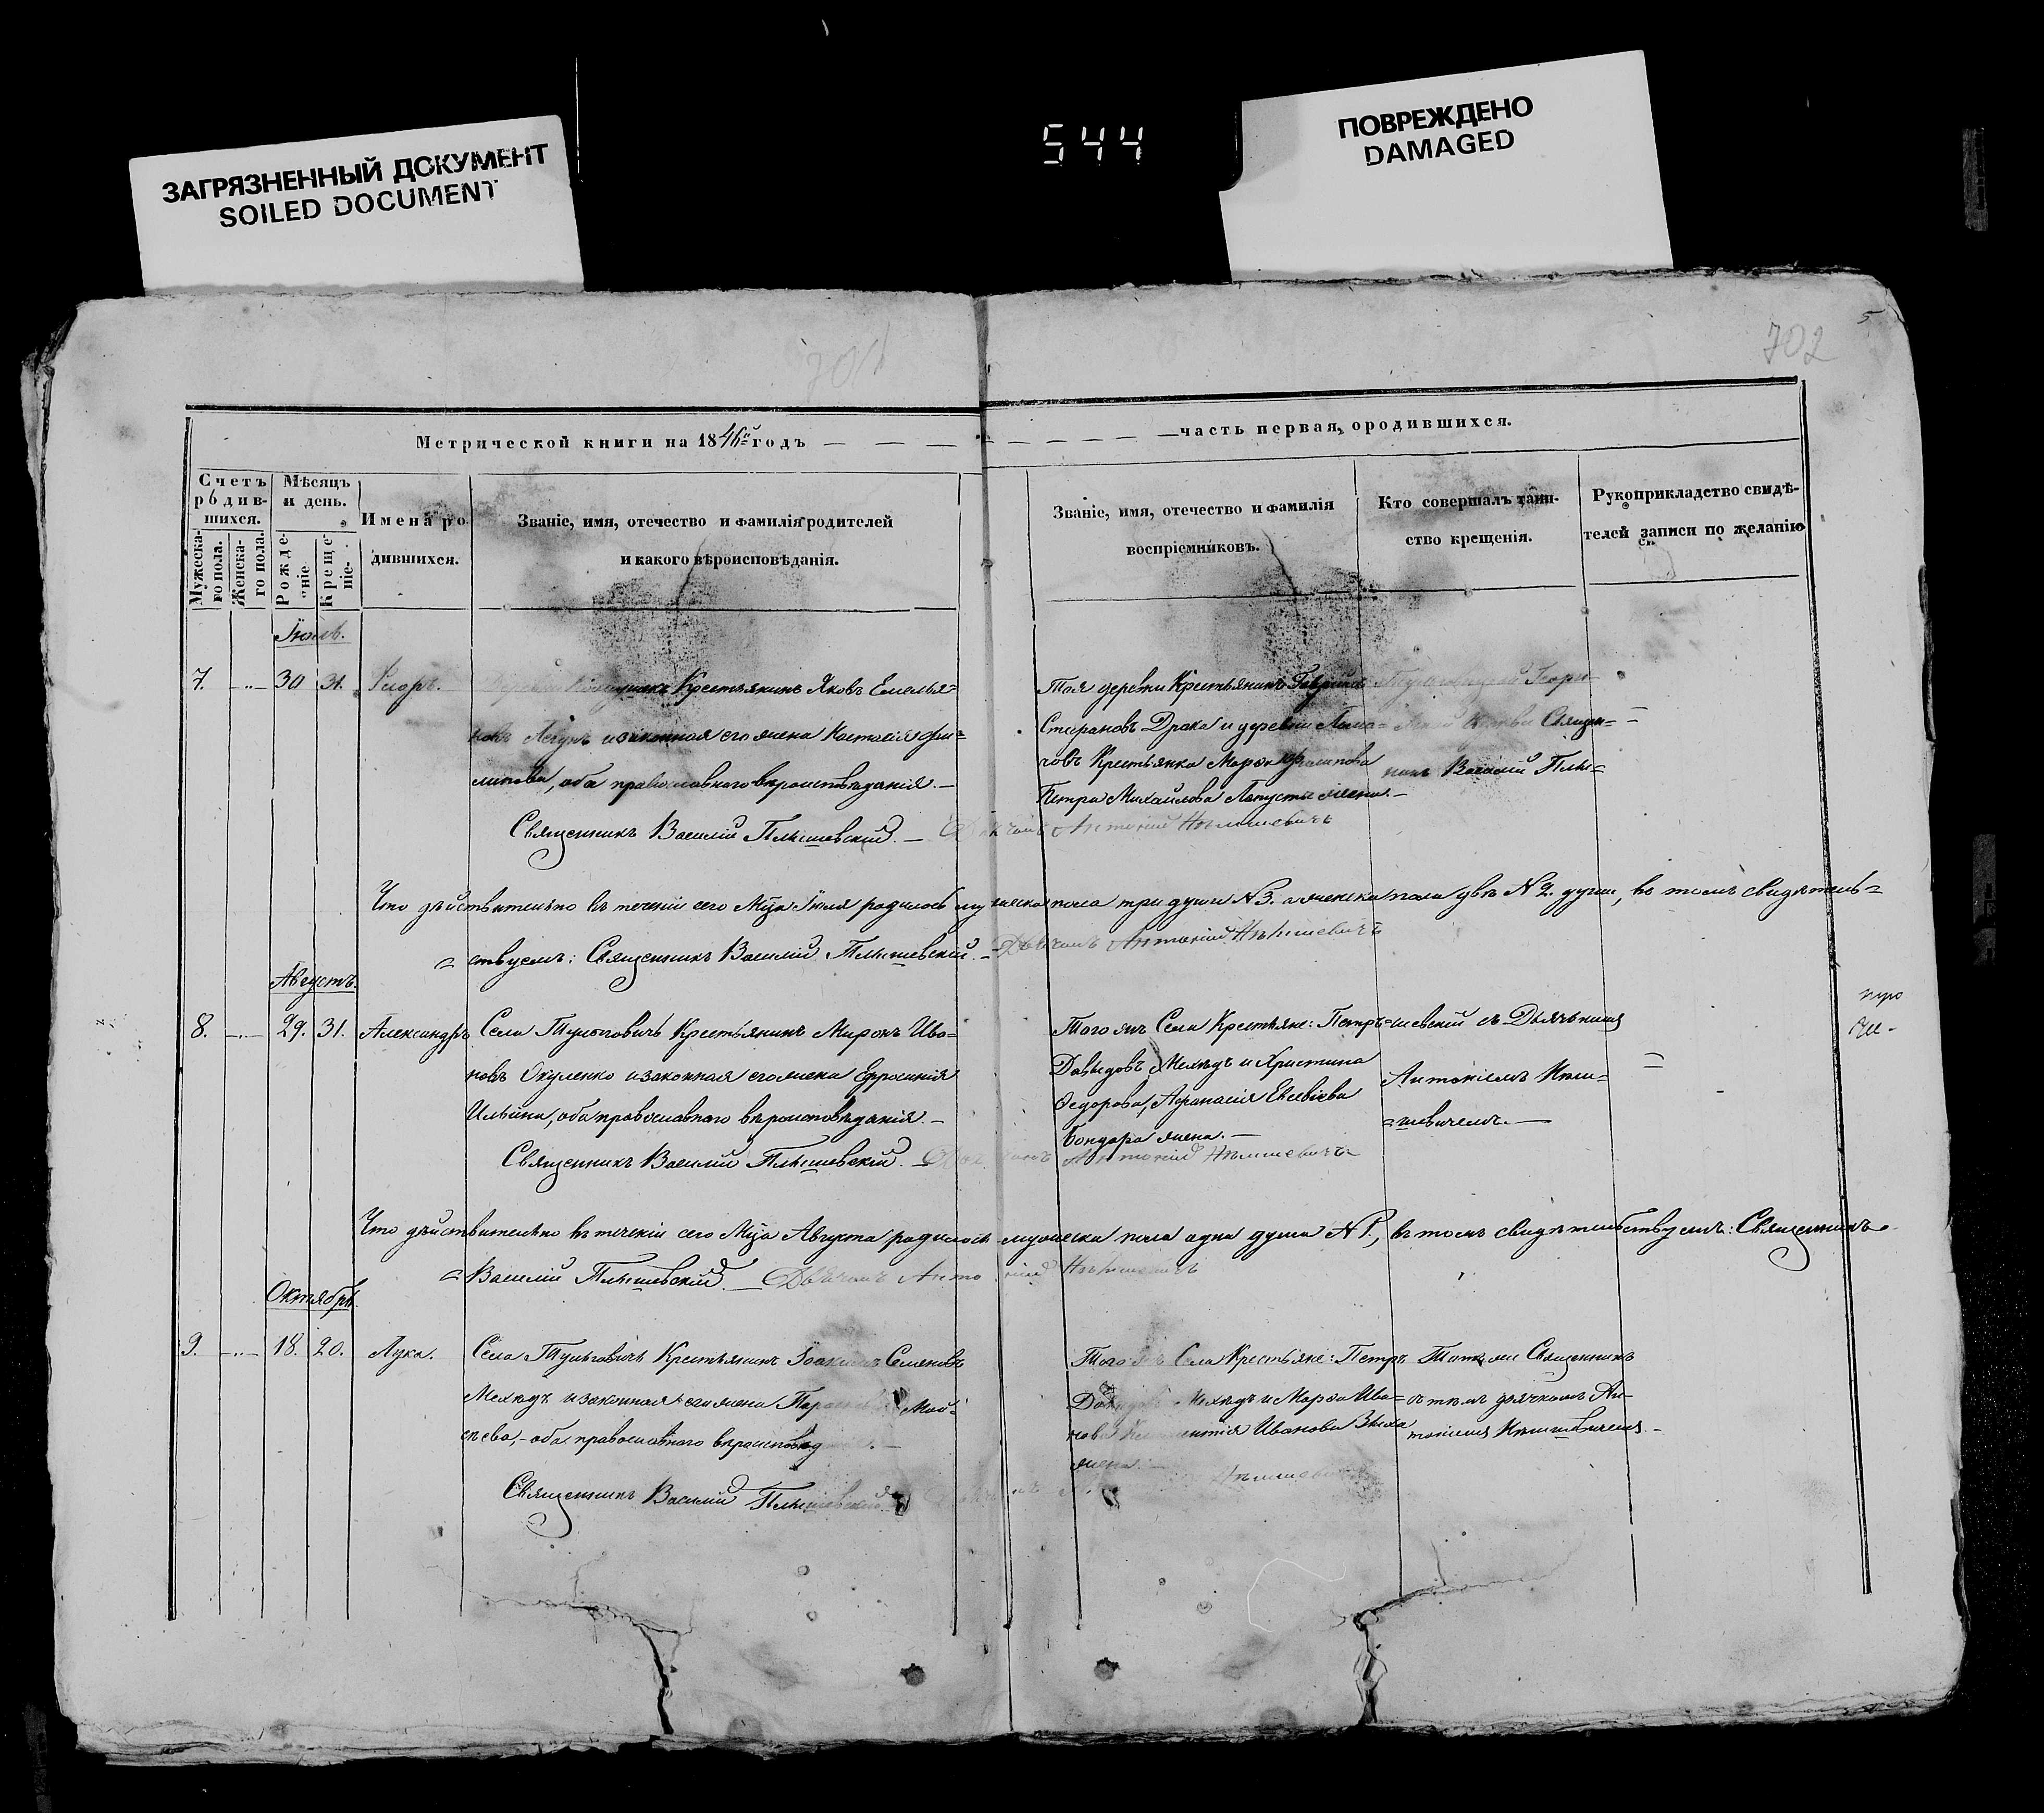 ЗАГРЯЗНЕННЫЙ ДОКУМЕНТ
SOILED DOCUMENT
544
ПОВРЕЖДЕНО
DAMAGED
701
702
5
Метрической книги на 1846й годъ
часть первая, ородившихся.
Счетъ родив-шихся.
Мужеска-го пола.
Женска-го пола.
Мѣсяцъ и день.
Рожде-ніе
Креще-ніе.
Имена ро-
дившихся.
Званіе, имя, отечество и фамилія родителей
и какого вѣроисповѣданія.
Званіе, имя, отечество и фамилія
воспріемниковъ.
Кто совершалъ таин-
ство крещенія.
Рукоприкладство свидѣ-
телей записи по желанію
Іюль.
7. 30 31. Флоръ.
Крестьянинъ Яковъ Емелья=
новъ и законная его жена Настасія Фи=
липова, оба православнаго вѣроисповѣданія.
Священникъ Василій Плышевскій. Антоній
Тоя деревни Крестьянинъ
Стефановъ Драка и деревни
Крестьянка Марѳа Филипова
Петра Михайлова жена.
Священ=
никъ Василій Плы=
Что дѣйствительно въ теченіи сего Мца Іюля родилось мужеска пола три души №3. а женска пола двѣ №2. души, въ томъ свидѣтель=
ствуемъ: Священникъ Василій Плышевскій. Дьячекъ Антоній
Августъ.
8. 29. 31. Александръ.
Села Тульговичъ Крестьянинъ Миронъ Ива=
новъ Окуленко и законная его жена Ефросинія
Ильина, оба православнаго вѣроисповѣданія.
Священникъ Василій Плышевскій. Антоній
Того жъ Села Крестьяне: Петръ
Давыдовъ Мехѣдъ и Христина
Ѳедорова, Афанасія Евсевіева
Бондара жена.
=шевскій съ Дьячкомъ
Антоніемъ
=шевичемъ.
Что дѣйствительно въ теченіи сего Мца Августа родилось мужеска пола одна душа №1, въ томъ свидѣтельствуемъ: Священникъ
Василій Плышевскій. Дьячекъ Антоній
Октябрь.
9. 18. 20. Лука.
Села Тульговичъ Крестьянинъ Іоакимъ Семеновъ
Мехѣдъ и законная его жена Мой=
сѣева, оба православнаго
Священникъ Василій Плышевскій.
Того жъ Села Крестьяне: Петръ
Давыдовъ Мехѣдъ и Марѳа Ива=
нова Иванова
жена.
Тотъ же Священникъ
съ тѣмъ дьячкомъ Ан=
тоніемъ